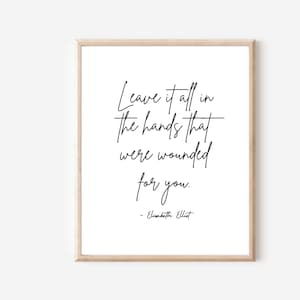 Leave it all in
the hands that
were wounded
for you.
- Elisabeth Elliot